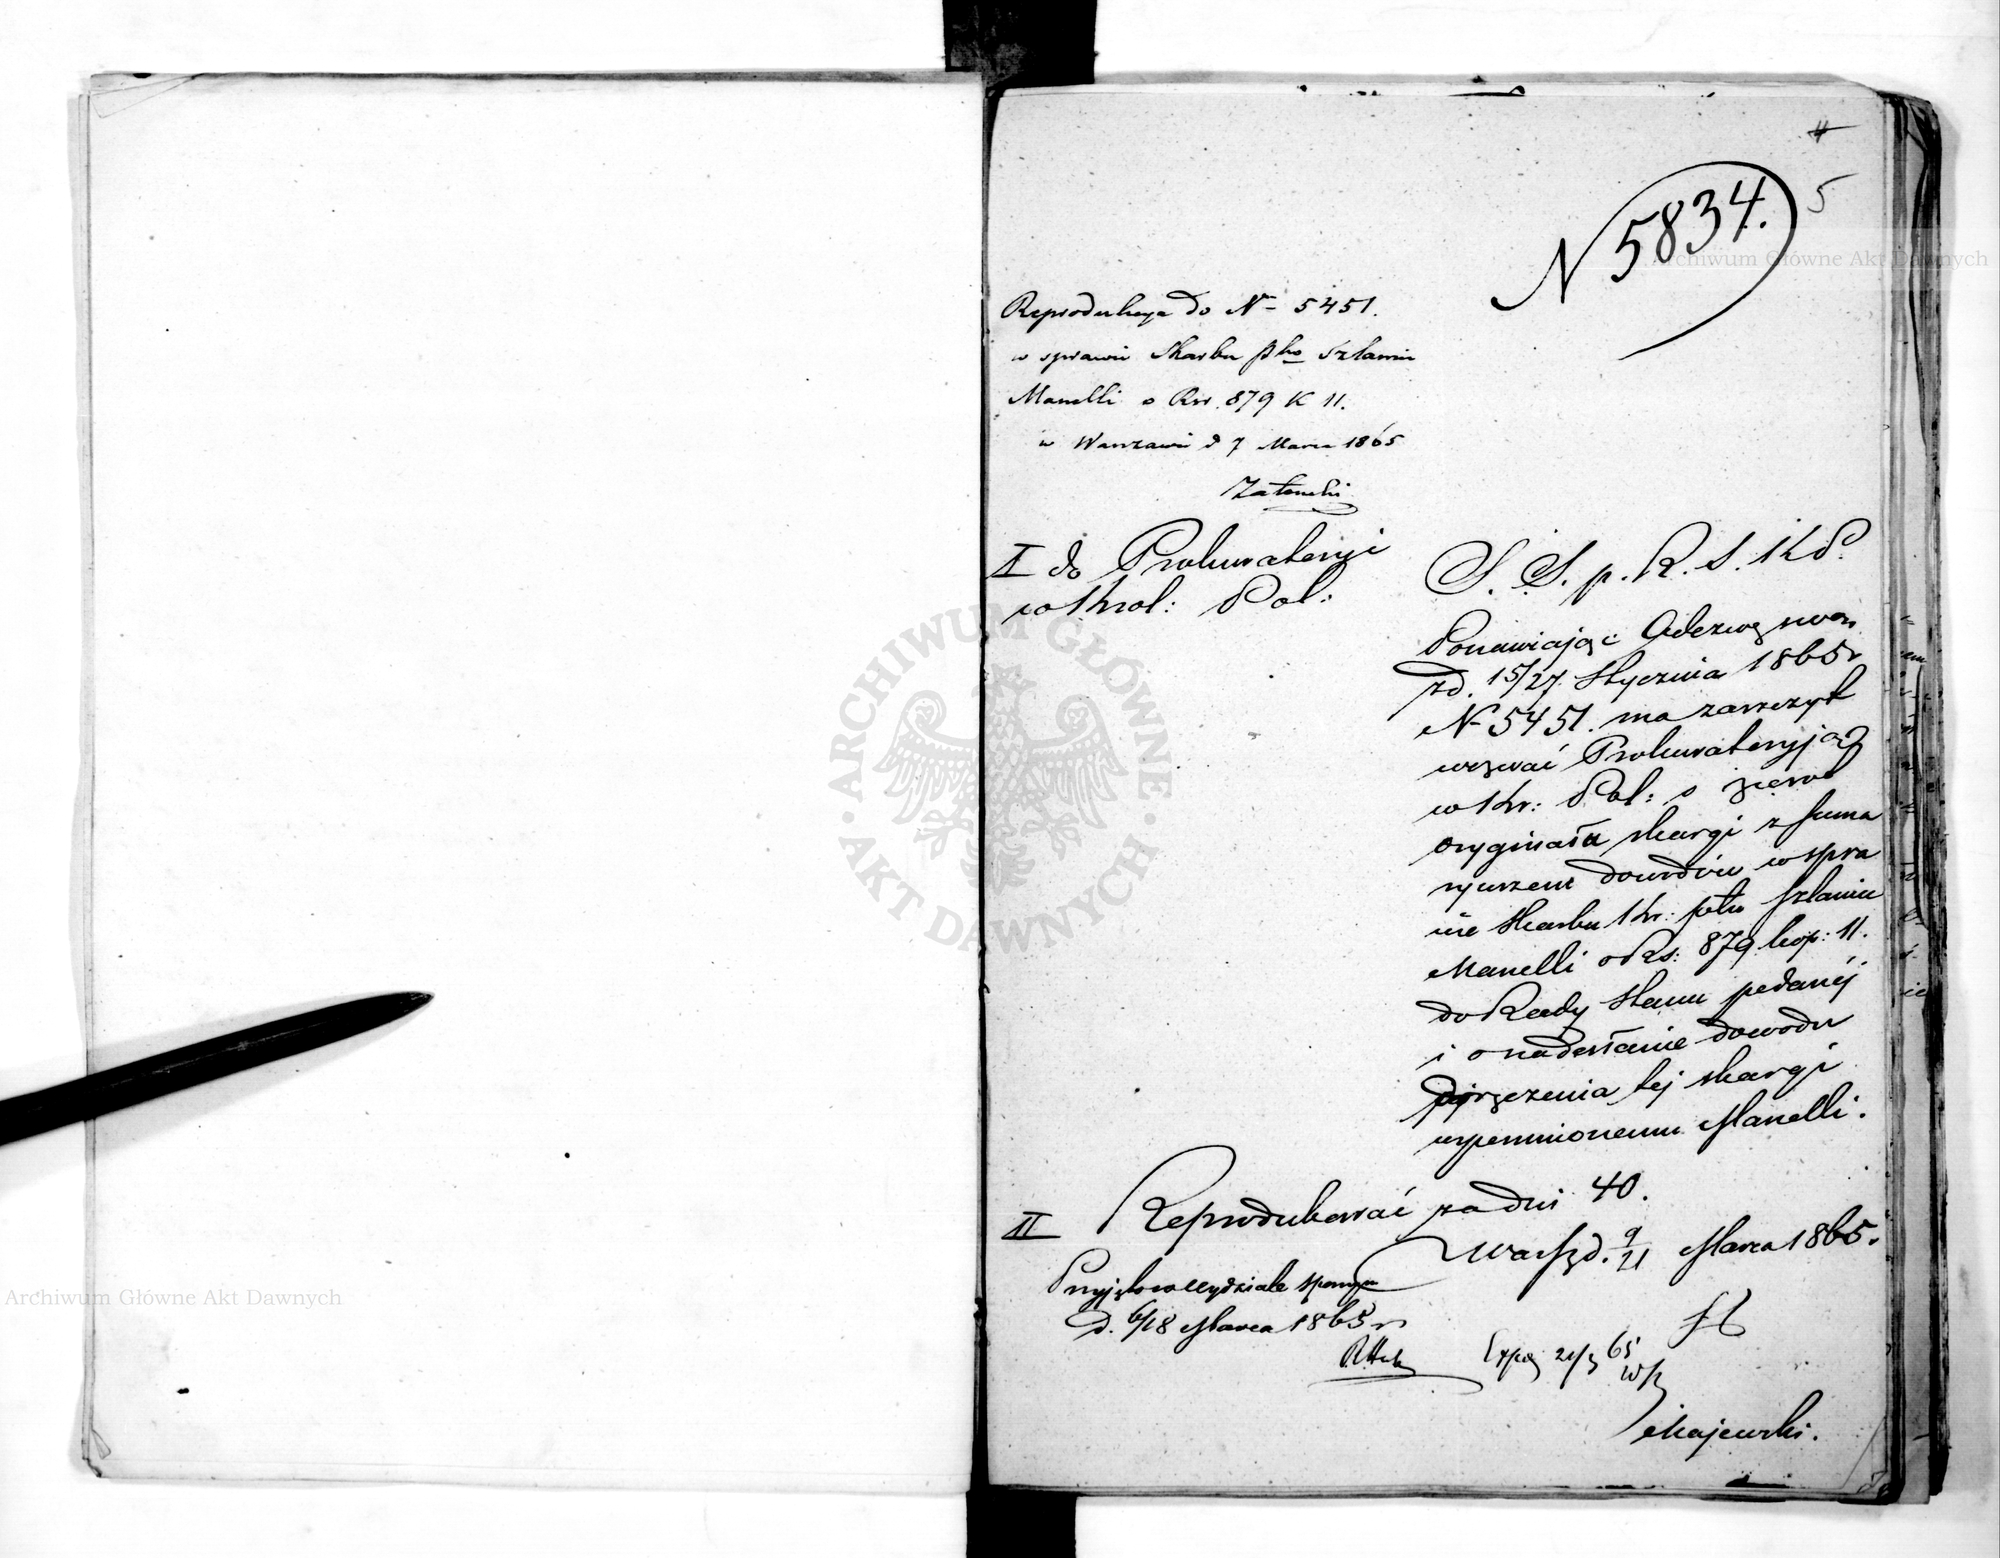 4
5
N 5834.
Archiwum Główne Akt Dawnych
Reprodukcya do N 5451.
w sprawie Skarbu pko Szlamie
Manelli o Rsr. 879 K 11.
w Warszawie d 7 Marca 1865
I do Prokuratoryi
w Krol: Pol:
S. S. p. R. S. K P.
Ponawiając Odezwę swoą
z d. 15/27 Stycznia 1865 r
N 5451. ma zaszczyt
wezwać Prokuratoryją
w Kr: Pol: o zwrot
oryginału skargi z summa
ryuszem dowodów w spra
wie Skarbu Kr: ptko Szlamie
Manelli o Rs: 879 kop: 11.
do Rady Stanu podanéj
i o nadesłanie dowodu
doręczenia téj skargi
wspomnionemu Manelli.
II Reprodukować za dni 40.
Warsz d. 9/21 Marca 1865.
Przyjęto w Wydziale Spornym
d. 6/18 Marca 1865 r
Exp 21/3 65
Majewski.
ARCHIWUM GŁÓWNE
AKT DAWNYCH
Archiwum Główne Akt Dawnych